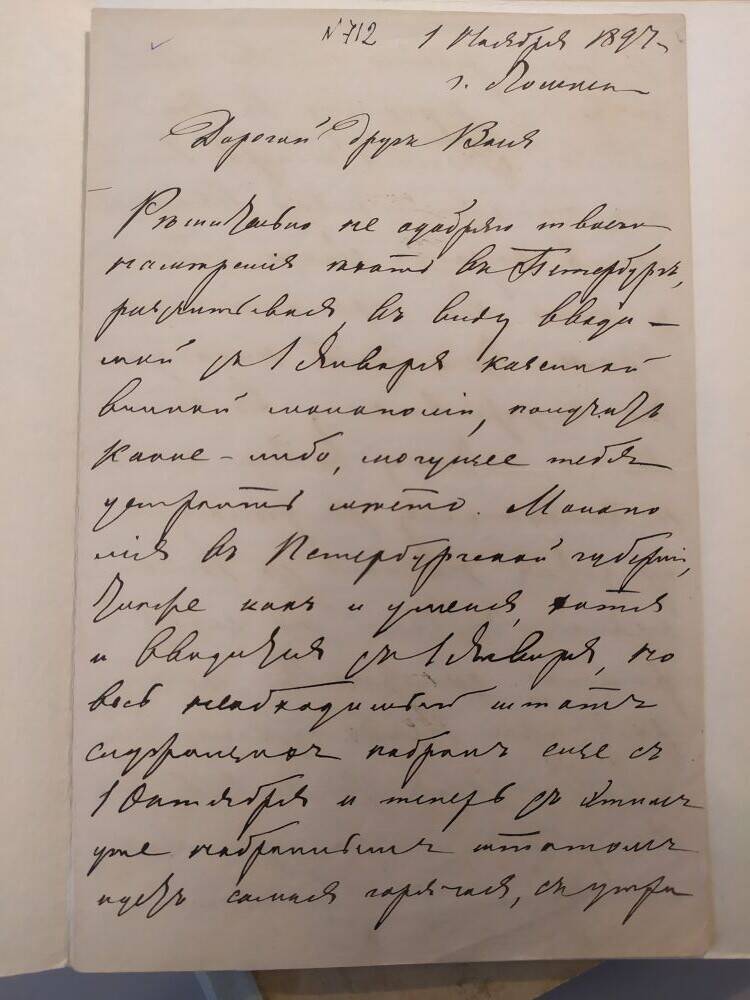 N 712 1 Ноября 1897
г.
Дорогой другъ Ваня
Рѣшительно не одобряю твоего
намѣренія ѣхать въ Петербургъ,
разсчитывая, въ виду вводи-
мой съ 1 Января казенной
винной монополіи, получить
какое-либо, могущее тебя
устроить мѣсто. Монопо
лія въ Петербургской губерніи,
также какъ и у меня, хотя
и вводится съ 1 Января, но
весь необходимый штатъ
служащихъ набранъ еще съ
1 Октября и теперь съ этимъ
уже набраннымъ штатомъ
идетъ самая горячая, съ утра